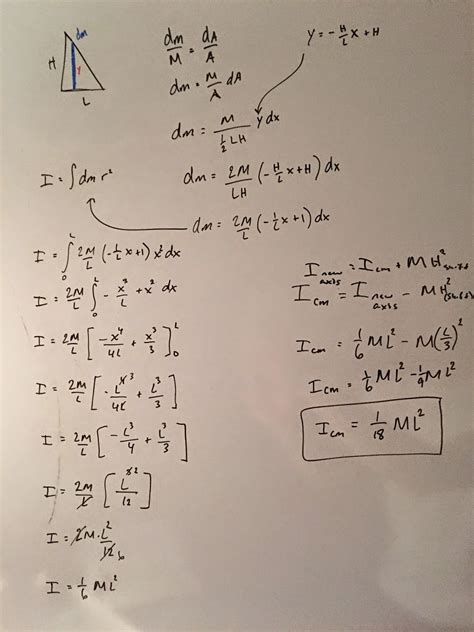 dm
H
y
L
dm/M = dA/A
y = -H/L x + H
dm = M/A dA
dm = M/(1/2 LH) y dx
I = ∫ dm r²
dm = 2M/LH (-H/L x + H) dx
dm = 2M/L (-1/L x + 1) dx
I = ∫₀ᴸ 2M/L (-1/L x + 1) x² dx
I = 2M/L ∫₀ᴸ -x³/L + x² dx
I = 2M/L [-x⁴/4L + x³/3]₀ᴸ
I = 2M/L [-L⁴³/4L + L³/3]
I = 2M/L [-L³/4 + L³/3]
I = 2M/L [L³²/12]
I = 2M · L²/12 6
I = 1/6 ML²
I new axis = I cm + M H² shifted
I cm = I new axis - M H² (shifted)
I cm = 1/6 ML² - M(L/3)²
I cm = 1/6 ML² - 1/9 ML²
I cm = 1/18 ML²